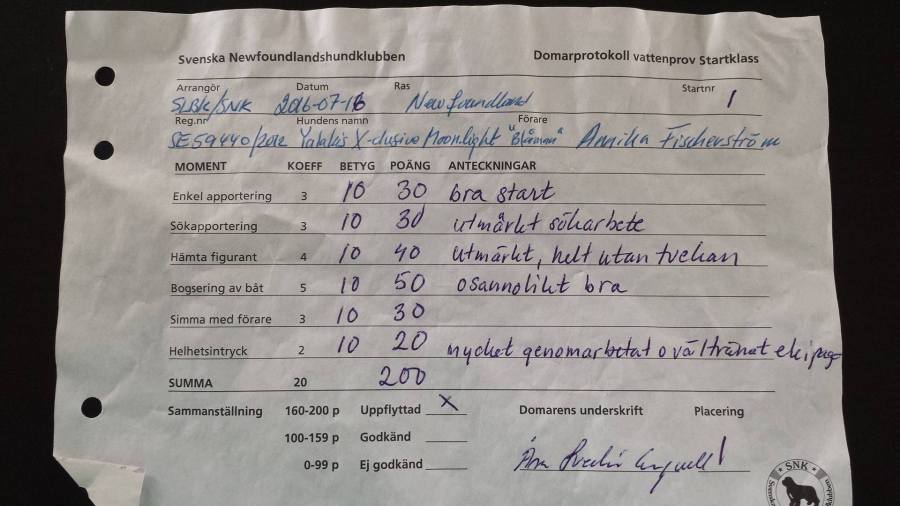 Svenska Newfoundlandshundklubben Domarprotokoll vattenprov Startklass
Arrangör Datum Ras Startnr
SLBK/SNK 2016-07-16 Newfoundland 1
Reg.nr Hundens namn Förare
SE59440/2012 X-clusive Moonlight "Blåman" Annika Fischerström
MOMENT KOEFF BETYG POÄNG ANTECKNINGAR
Enkel apportering 3 10 30 bra start
Sökapportering 3 10 30 utmärkt sökarbete
Hämta figurant 4 10 40 utmärkt, helt utan tvekan
Bogsering av båt 5 10 50 osannolikt bra
Simma med förare 3 10 30
Helhetsintryck 2 10 20 mycket genomarbetat o vältränat ekipage
SUMMA 20 200
Sammanställning 160-200 p Uppflyttad X Domarens underskrift Placering
100-159 p Godkänd
0-99 p Ej godkänd
SNK